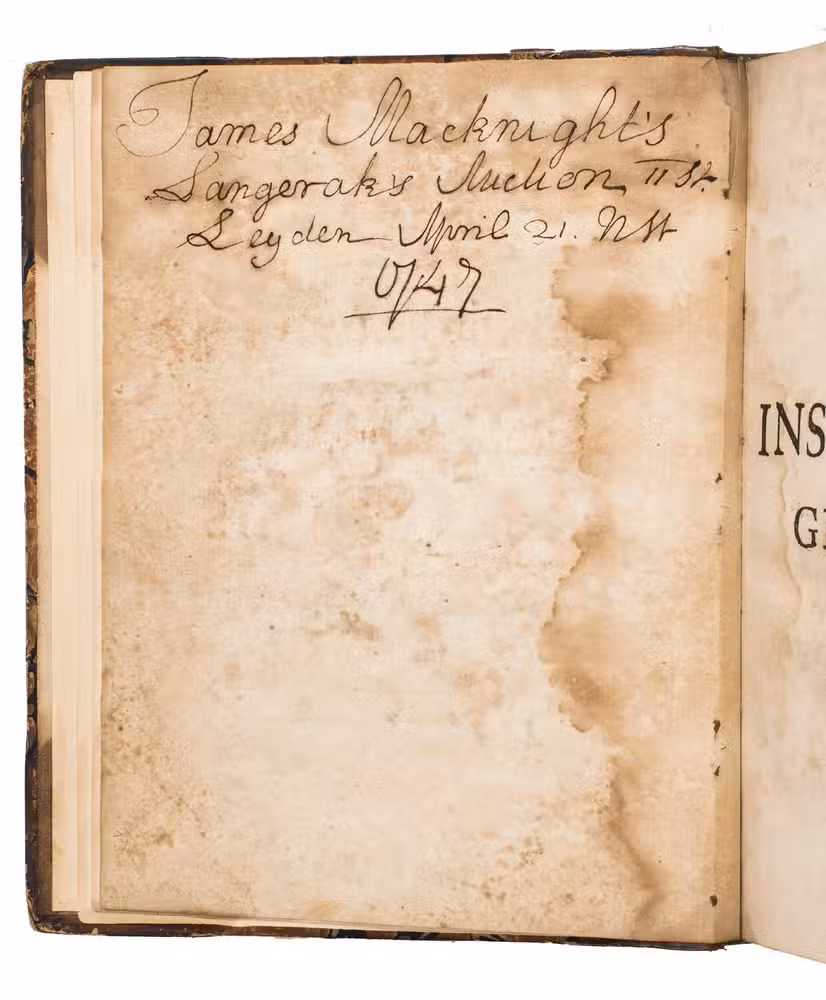 James Macknight's
Langerak's Auction II St.
Leyden April 21. NSt
1747
INS
G